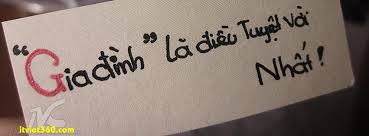 “Gia đình” là điều Tuyệt Vời
Nhất!
itviet360.com